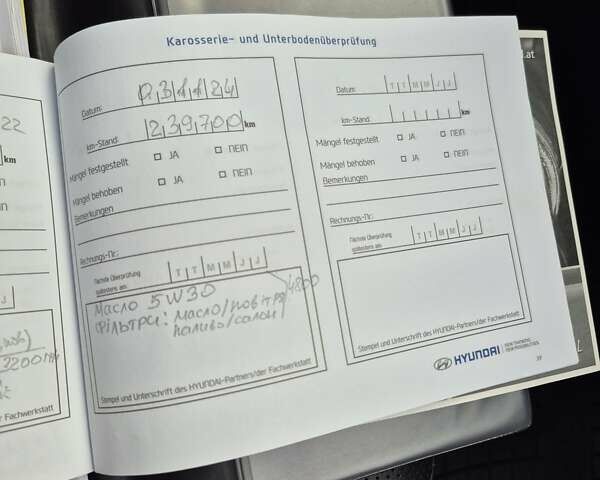 Karosserie- und Unterbodenüberprüfung
22
km
J
3200
er Fachwerkstatt
Datum: 0 3 1 1 2 4
km-Stand: 2 3 9 7 0 0 km
Mängel festgestellt JA NEIN
Mängel behoben JA NEIN
Bemerkungen
Rechnungs-Nr.:
Nächste Überprüfung
spätestens am: T T M M J J
Масло 5W30
Фільтри: масло/повітря
паливо/салон
4800
Stempel und Unterschrift des HYUNDAI-Partners/der Fachwerkstatt
Datum: T T M M J J
km-Stand: km
Mängel festgestellt JA NEIN
Mängel behoben JA NEIN
Bemerkungen
Rechnungs-Nr.:
Nächste Überprüfung
spätestens am: T T M M J J
Stempel und Unterschrift des HYUNDAI-Partners/der Fachwerkstatt
HYUNDAI NEW THINKING.
NEW POSSIBILITIES.
.at